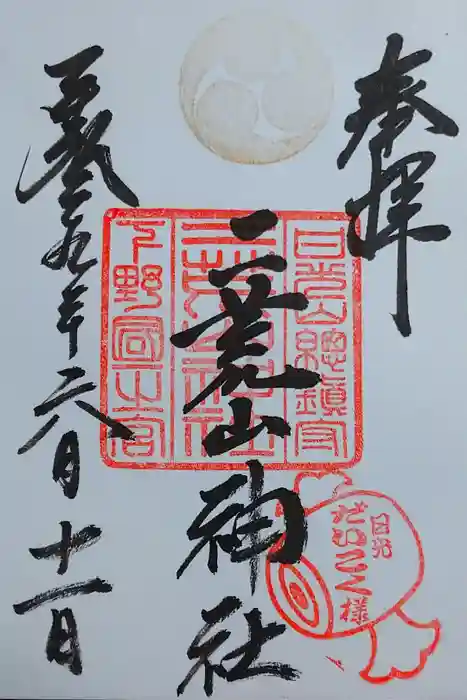 奉拝
日光山總鎮守
二荒山神社
下野國一之宮
二荒山神社
日光
だいこく様
平成二九年六月十一日